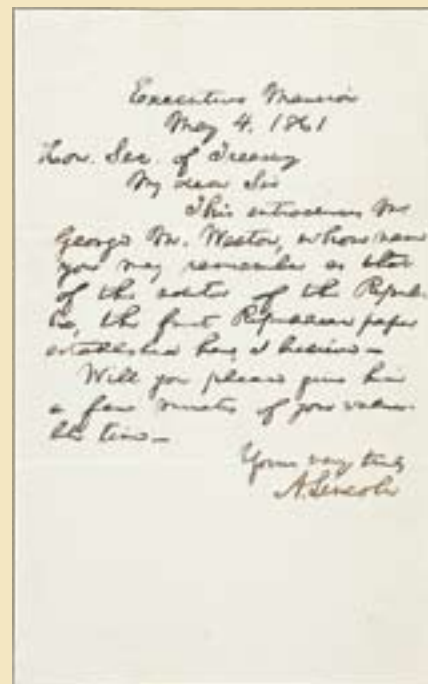 Executive Mansion
May 4, 1861
Hon. Sec. of Treasury
My dear Sir
This introduces Mr
George M. Weston, whose name
you may remember as that
of the editor of the Repub-
lic, the first Republican paper
established here, I believe—
Will you please give him
a few minutes of your valua-
ble time—
Yours very truly
A. Lincoln